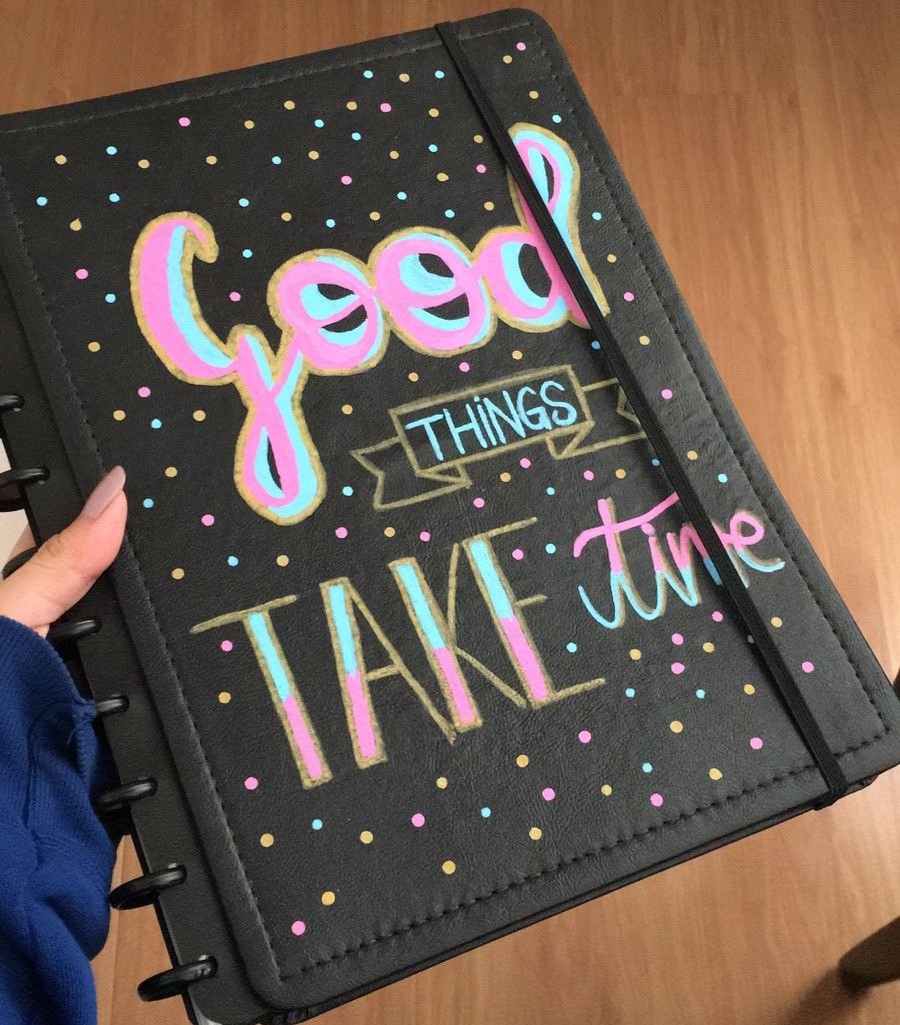 Good
THiNGS
TAKE time